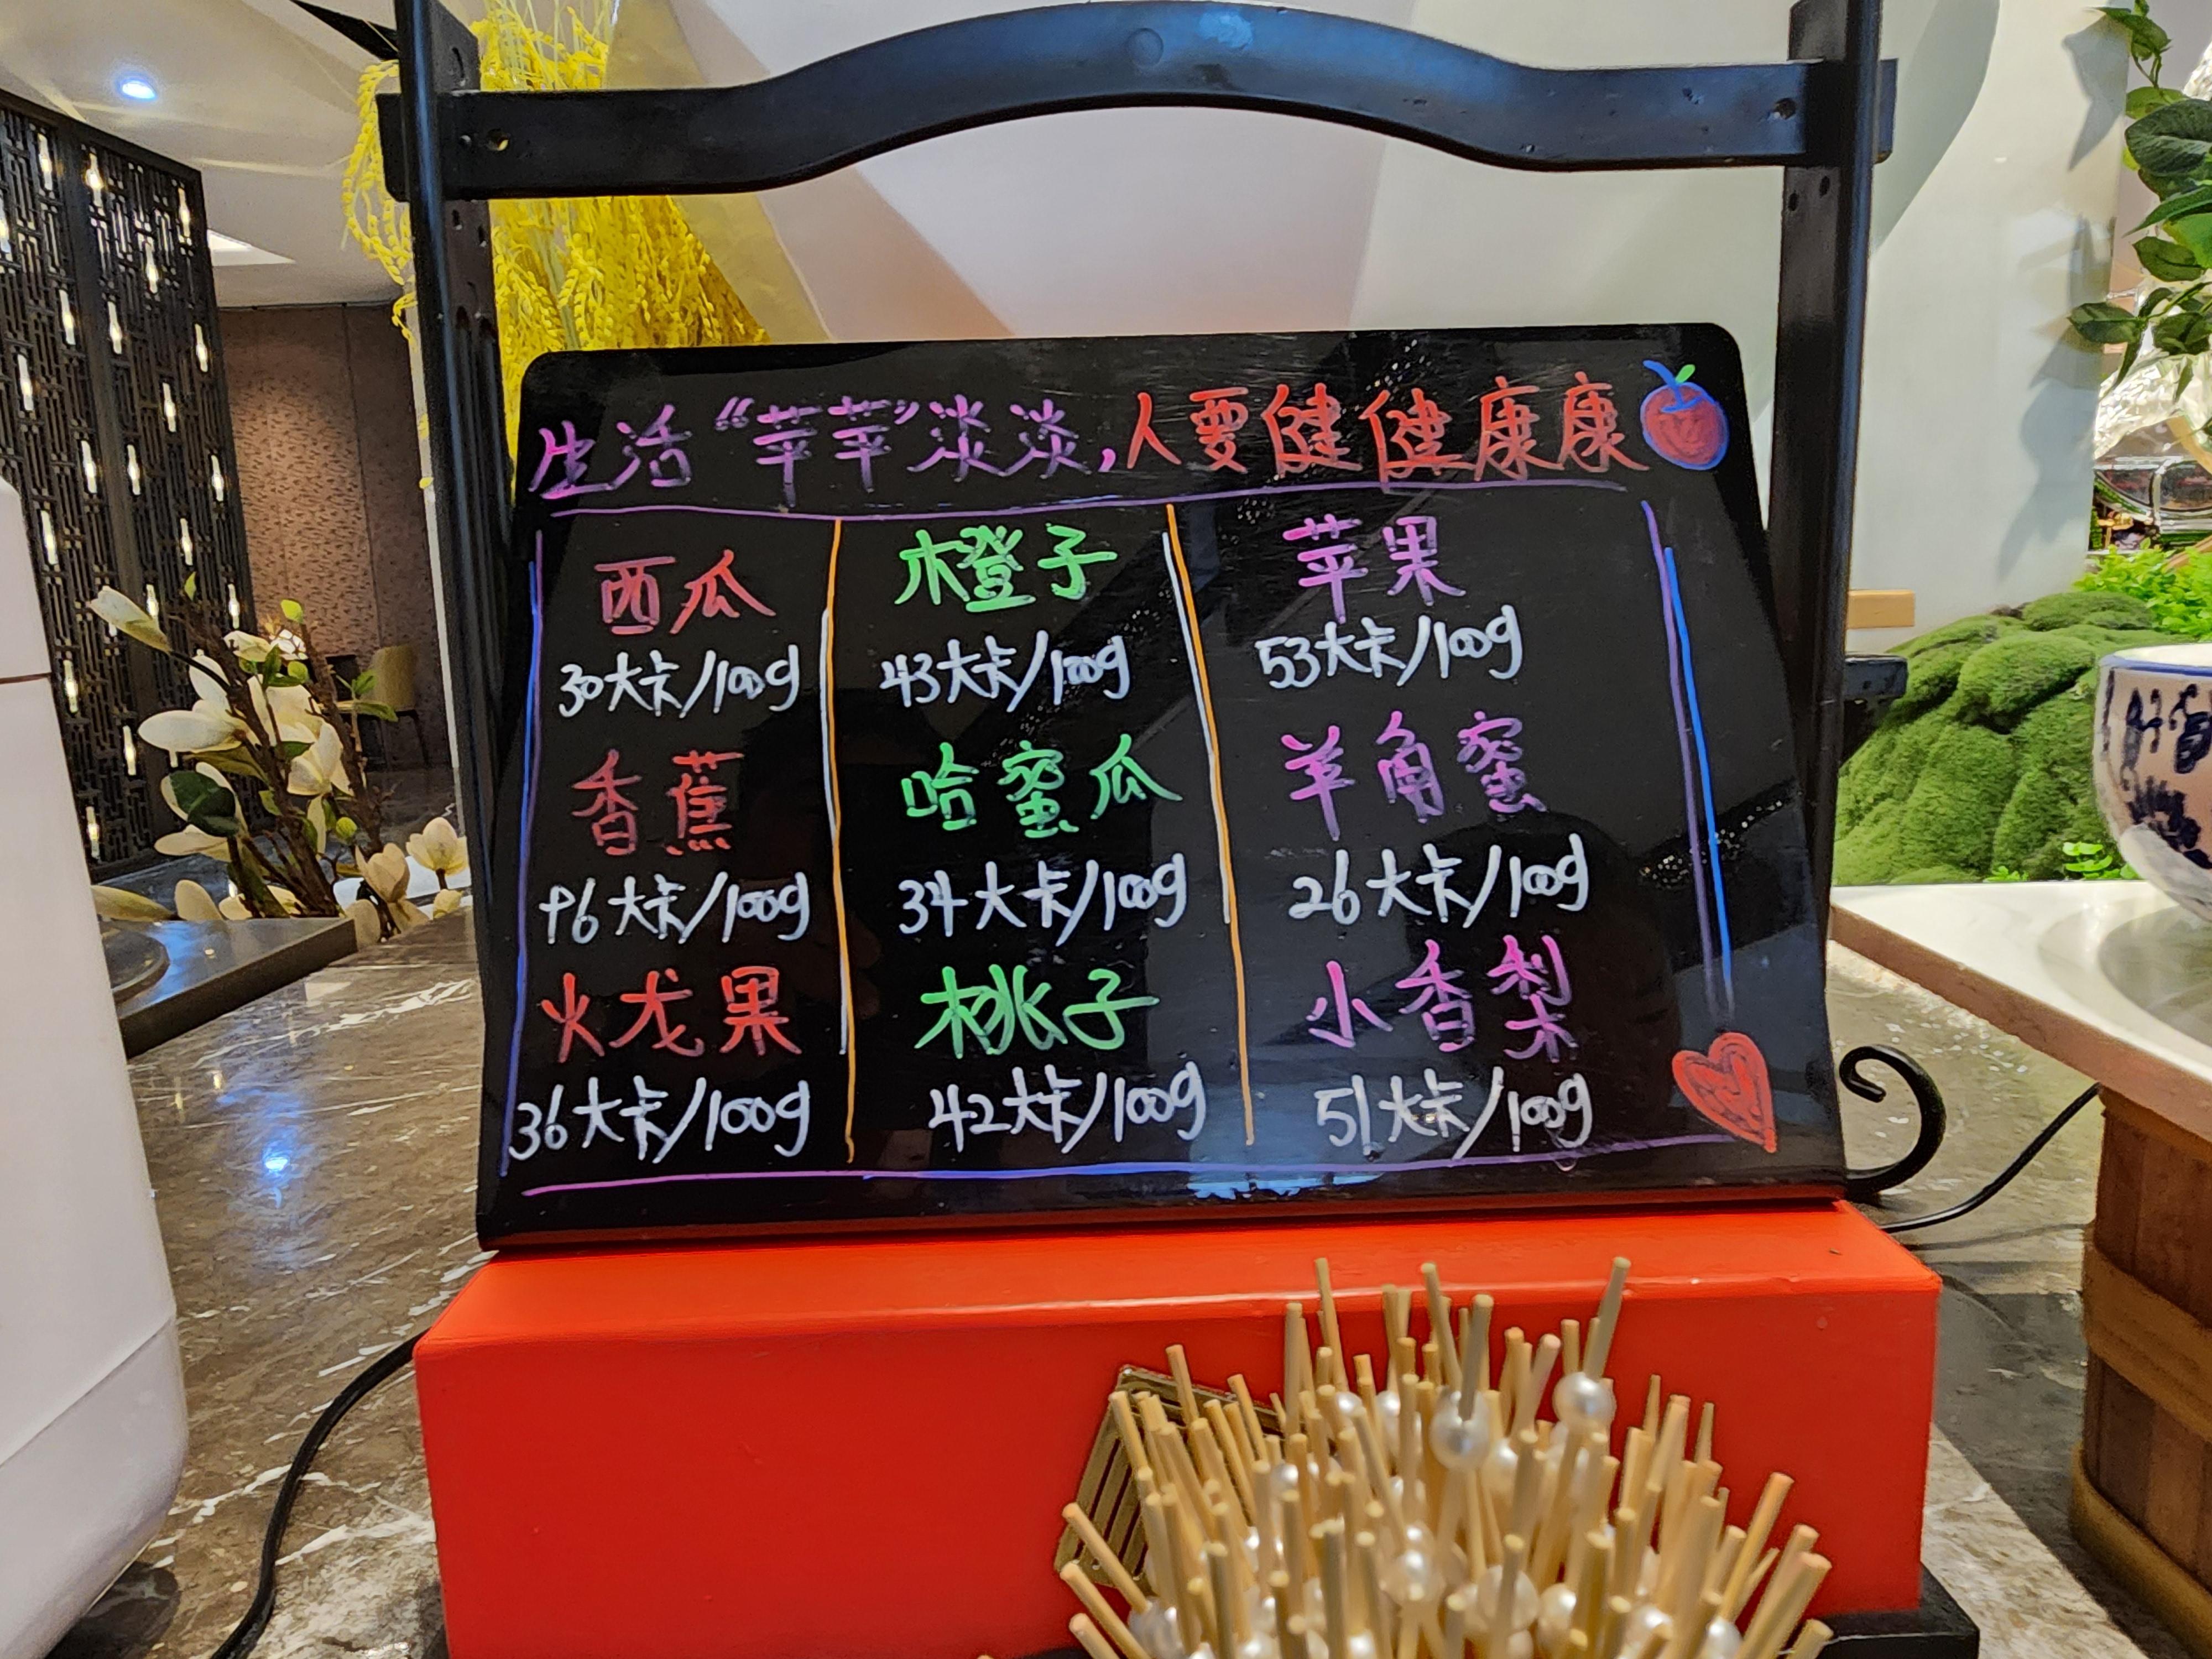 生活“苹苹”淡淡,人要健健康康
西瓜 橙子 苹果
30大卡/100g 43大卡/100g 53大卡/100g
香蕉 哈蜜瓜 羊角蜜
96大卡/100g 34大卡/100g 26大卡/100g
火龙果 桃子 小香梨
36大卡/100g 42大卡/100g 51大卡/100g